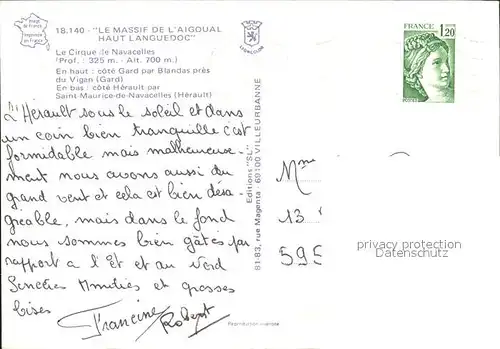 18.140 - "LE MASSIF DE L'AIGOUAL
HAUT LANGUEDOC"
Le Cirque de Navacelles
(Prof. : 325 m. - Alt. 700 m.)
En haut : côté Gard par Blandas près
du Vigan (Gard)
En bas : côté Hérault par
Saint-Maurice-de-Navacelles (Hérault)
L'Hérault sous le soleil et dans
un coin bien tranquille c'est
formidable mais malheureuse-
ment nous avons aussi du
grand vent et cela est bien désa-
gréable, mais dans le fond
nous sommes bien gâtés par
rapport à l'Et et au Verd
Sincères Amitiés et grosses
bises
Francine Robert
Reproduction interdite
Editions "SL"
81-83, rue Magenta - 69100 VILLEURBANNE
FRANCE
1,20
Mme
13
595
propriety protection
Datenschutz